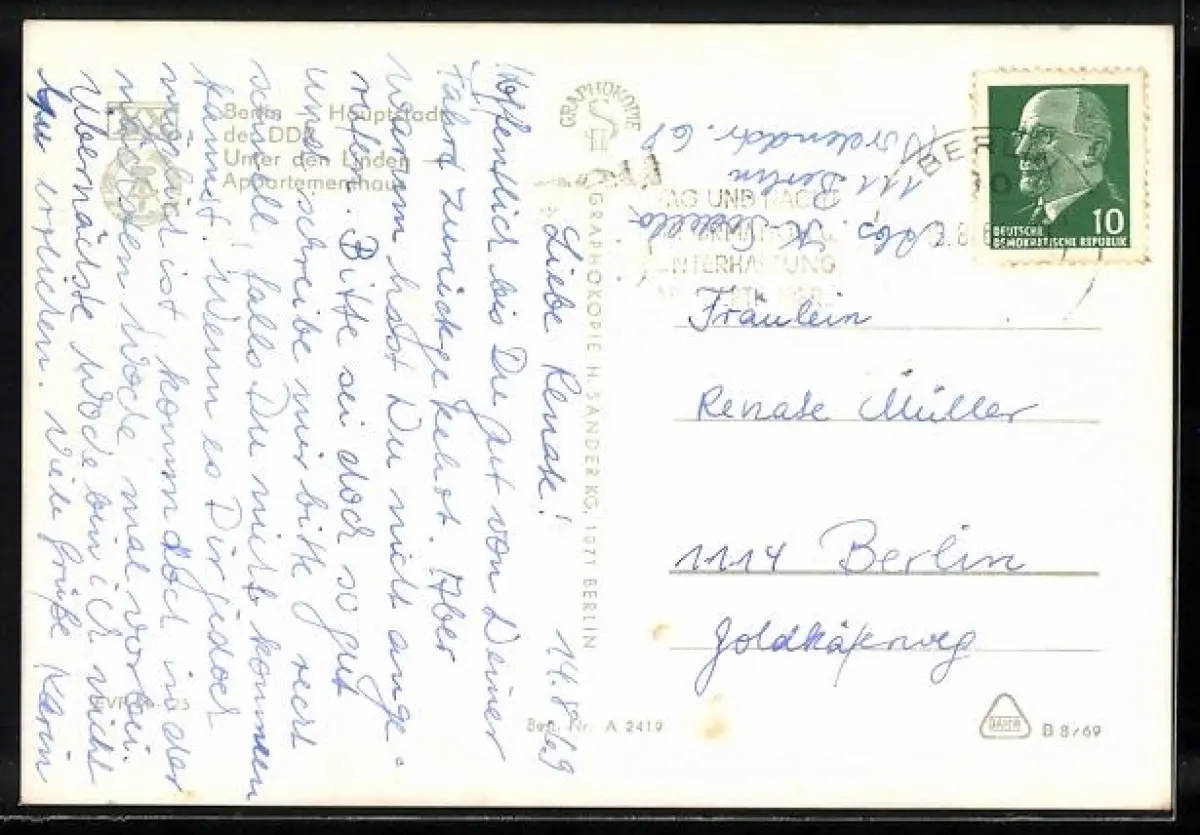 Berlin Hauptstadt
der DDR
Unter den Linden
Appartementhaus
GRAPHOKOPIE
GRAPHOKOPIE H. SANDER KG, 1071 BERLIN
EVP
Best. Nr. A 2419
B 8/69
14.8.69
Liebe Renate!
Hoffentlich bis Du gut von Deiner
Fahrt zurückgekehrt. Aber
warum hast Du nicht ange-
rufen. Bitte sei doch so gut
und schreibe mir bitte recht
schnell, falls Du nicht kommen
kannst. Wenn es Dir jedoch
möglich ist komm doch in der
nächsten Woche mal vorbei.
Übernächste Woche bin ich nicht
zu erreichen. Viele Grüße Karin
Abs. K.
111 Berlin
68
BERLIN
TAG UND NACHT
UNTERHALTUNG
10
DEUTSCHE
DEMOKRATISCHE REPUBLIK
Fräulein
Renate Müller
1114 Berlin
Goldkäferweg